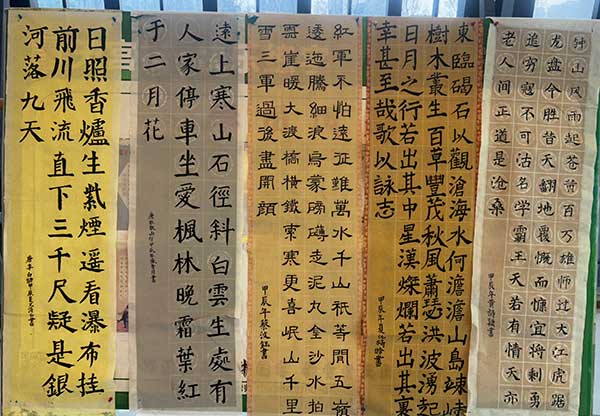 日照香爐生紫煙遙看瀑布掛
前川飛流直下三千尺疑是銀
河落九天
遠上寒山石徑斜白雲生處有
人家停車坐愛楓林晚霜葉紅
于二月花
紅軍不怕遠征難萬水千山秖等閒五嶺
逶迤騰細浪烏蒙磅礴走泥丸金沙水拍
雲崖暖大渡橋橫鐵索寒更喜岷山千里
雪三軍過後盡開顏
甲辰年蔡書
東臨碣石以觀滄海水何澹澹山島竦峙
樹木叢生百草豐茂秋風蕭瑟洪波湧起
日月之行若出其中星漢燦爛若出其裏
幸甚至哉歌以詠志
甲辰年夏書
钟山风雨起苍黄百万雄师过大江虎踞
龙盘今胜昔天翻地覆慨而慷宜将剩勇
追穷寇不可沽名学霸王天若有情天亦
老人间正道是沧桑
甲辰年黄詩書